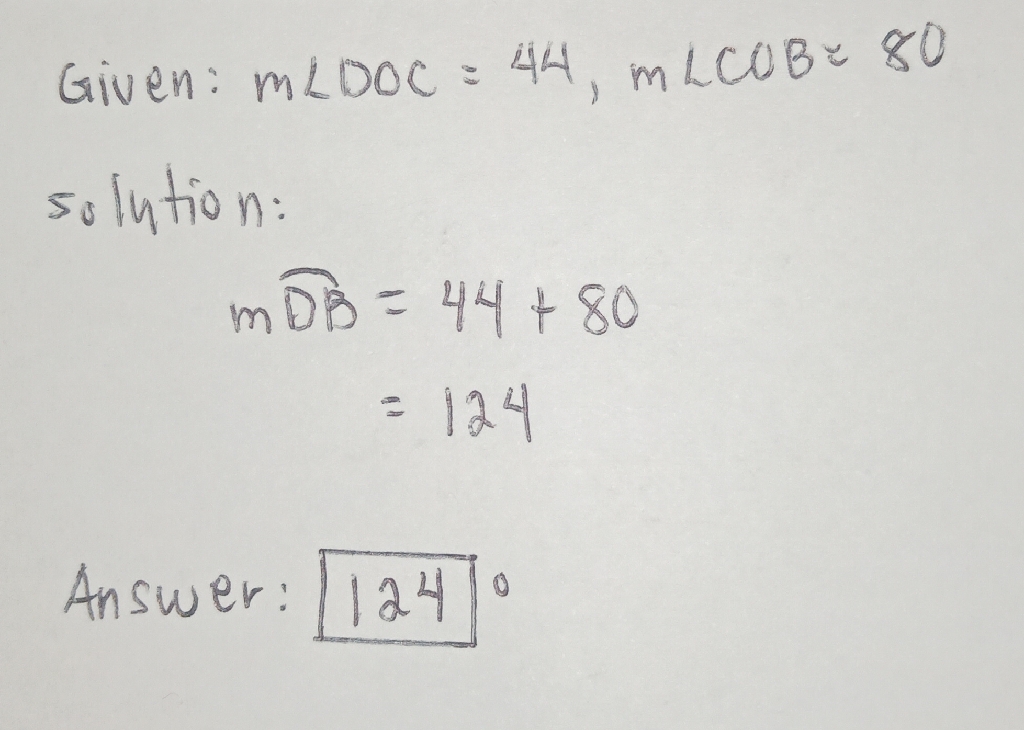 Given: m∠DOC = 44, m∠COB = 80
solution:
m⌢DB = 44 + 80
= 124
Answer: 124°